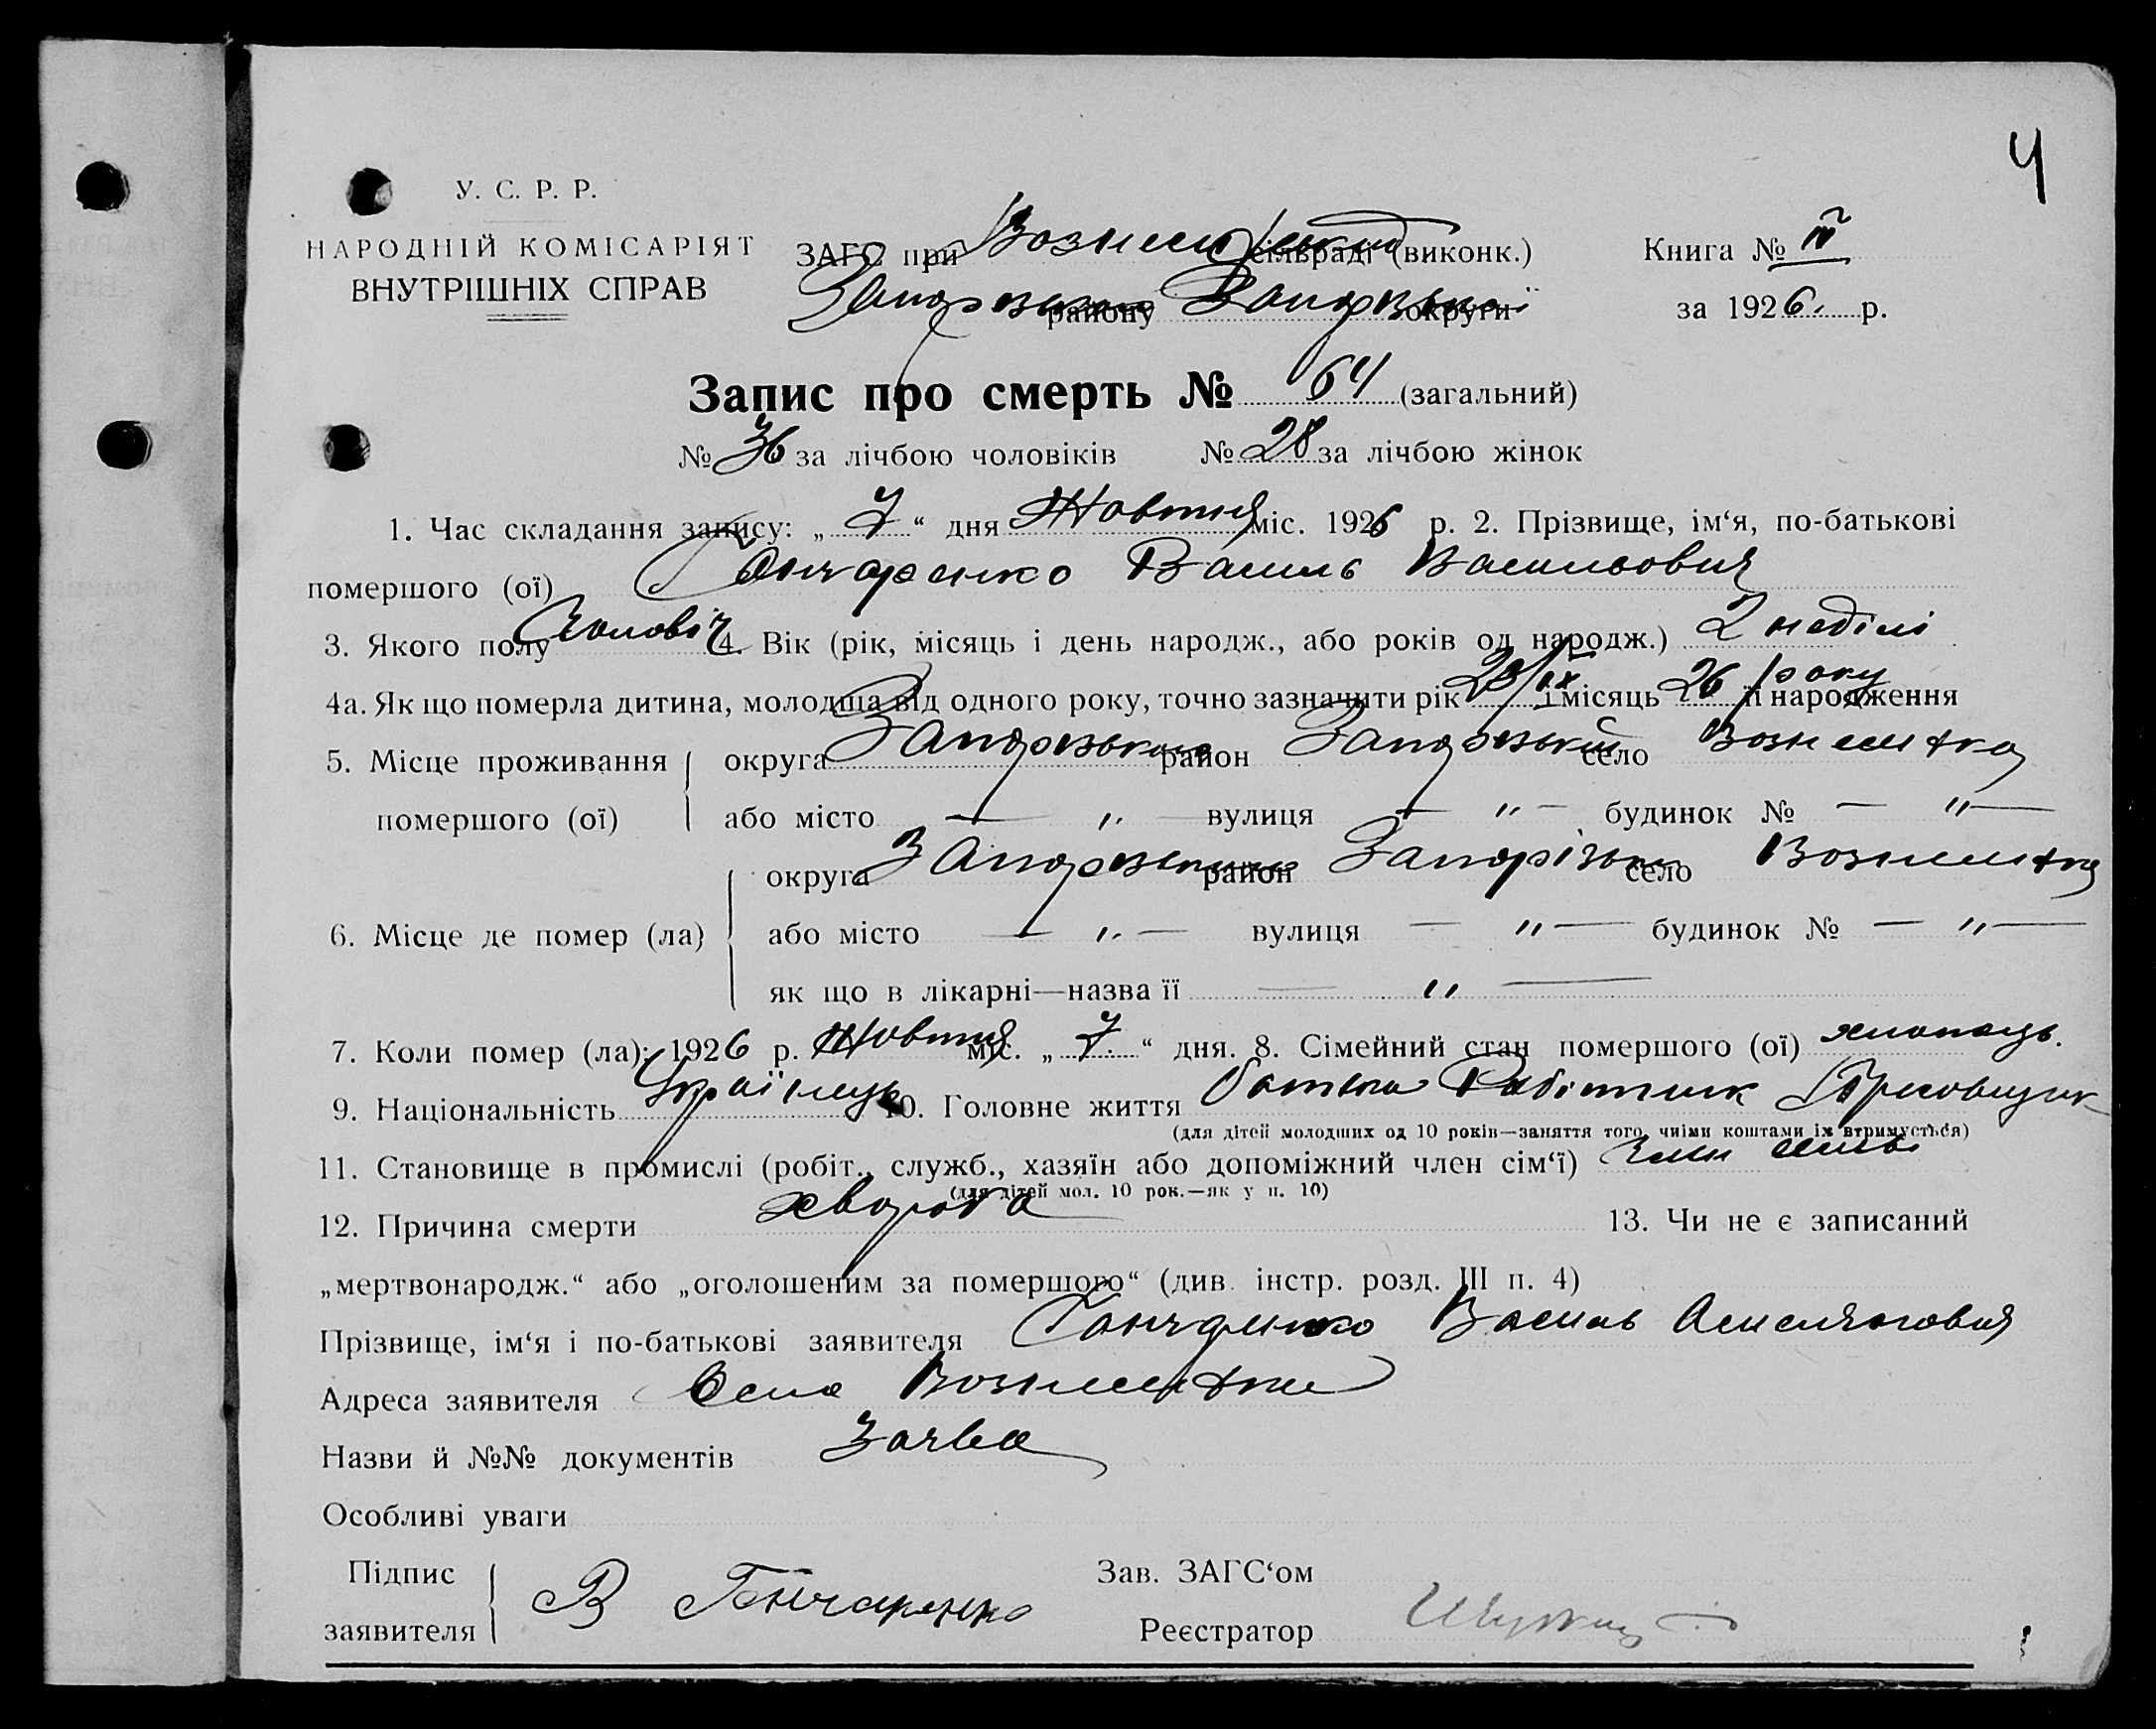 4
У. С. Р. Р.
НАРОДНІЙ КОМІСАРІЯТ
ВНУТРІШНІХ СПРАВ
ЗАГС при Вознесенській сільраді (виконк.)
району округи
Книга № IV
за 1926 р.
Запис про смерть № 64 (загальний)
№ 36 за лічбою чоловіків № 28 за лічбою жінок
1. Час складання запису: „ 7 “ дня Жовтня міс. 1926 р. 2. Прізвище, ім‘я, по-батькові
помершого (ої) Гончаренко Василь Васильович
3. Якого полу Чоловіч 4. Вік (рік, місяць і день народж., або років од народж.) 2 неділі
4а. Як що померла дитина, молодша від одного року, точно зазначити рік 23/IX і місяць 26 року її народження
5. Місце проживання округа Запорізька район Запорізький село Вознесенка
помершого (ої) або місто — " — вулиця — " — будинок № — " —
округа Запорізька район Запорізький село Вознесенка
6. Місце де помер (ла) або місто — " — вулиця — " — будинок № — " —
як що в лікарні—назва її — " —
7. Коли помер (ла): 1926 р. Жовтня міс. „ 7 “ дня. 8. Сімейний стан помершого (ої) хлопець.
9. Національність Українець 10. Головне життя батька Робітник
(для дітей молодших од 10 років—заняття того, чиїми коштами їх втримується)
11. Становище в промислі (робіт., служб., хазяїн або допоміжний член сім‘ї) Член сим'ї
(для дітей мол. 10 рок.—як у п. 10)
12. Причина смерти хвороба 13. Чи не є записаний
„мертвонародж.“ або „оголошеним за помершого“ (див. інстр. розд. III п. 4)
Прізвище, ім‘я і по-батькові заявителя Гончаренко Василь
Адреса заявителя Село Вознесенка
Назви й №№ документів Заява
Особливі уваги
Підпис
заявителя В Гончаренко
Зав. ЗАГС‘ом
Реєстратор